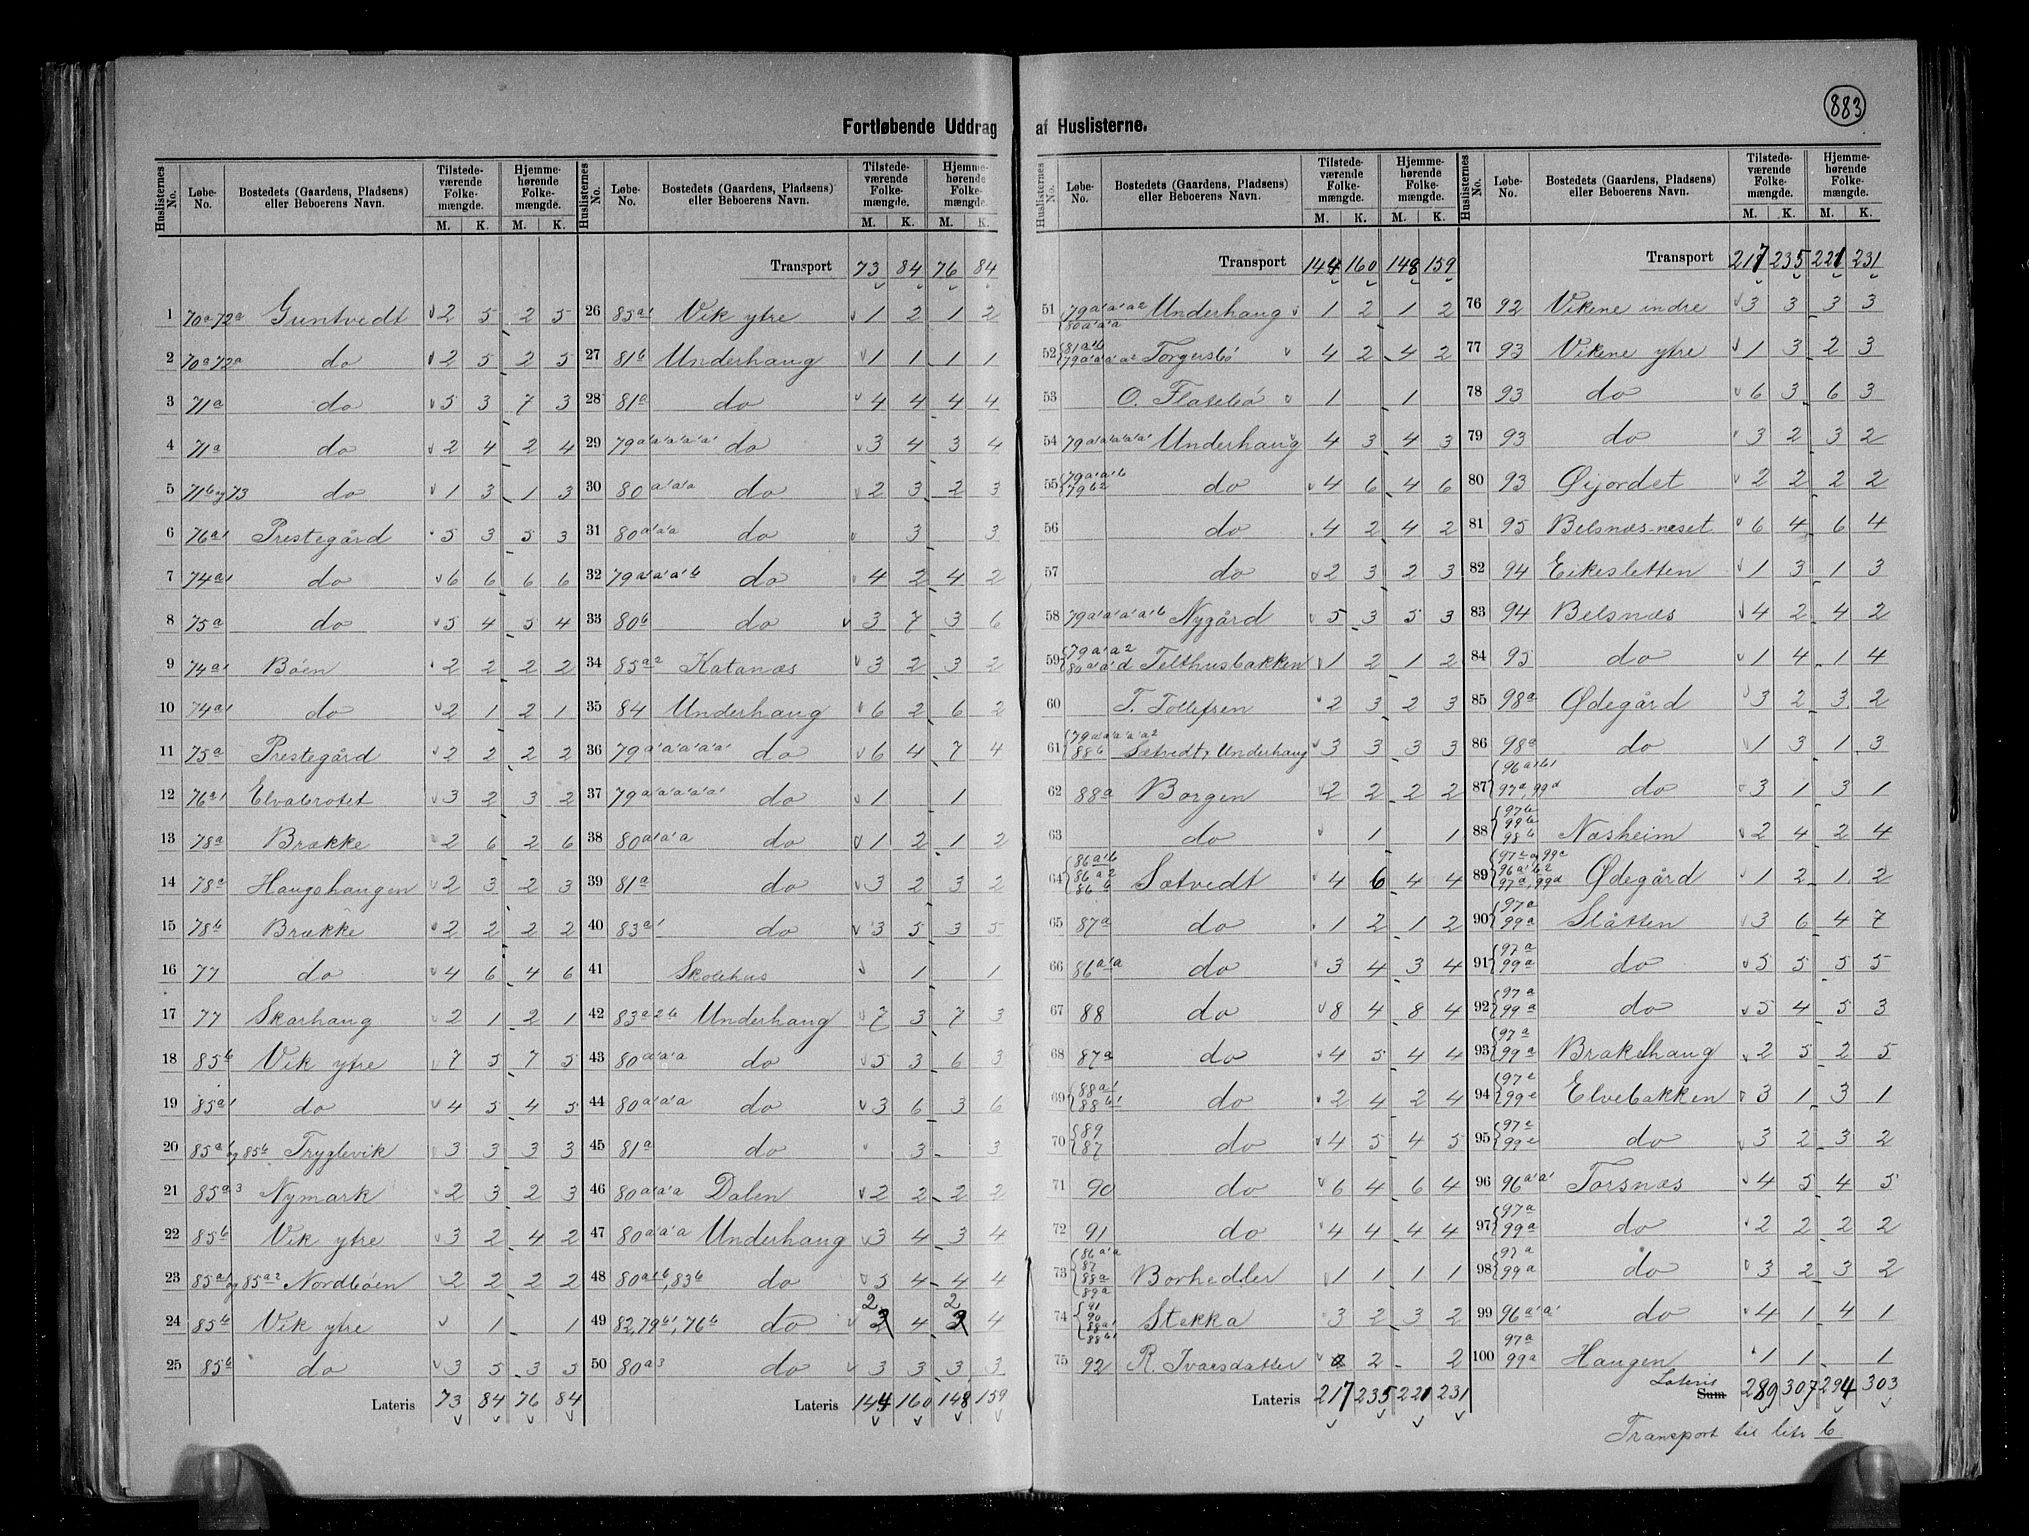 883
Fortløbende Uddrag af Huslisterne.
Huslisternes No. | Løbe-No. | Bostedets (Gaardens, Pladsens) eller Beboerens Navn. | Tilstedeværende Folkemængde. M. K. | Hjemmehørende Folkemængde. M. K.
1 70a-72a Guntvedt 2 5 2 5
2 70a 72a do 2 5 2 5
3 71a do 5 3 7 3
4 71a do 2 4 2 4
5 71b og 73 do 1 3 1 3
6 76a1 Prestegård 5 3 5 3
7 74a1 do 6 6 6 6
8 75a do 5 4 5 4
9 74a1 Böen 2 2 2 2
10 74a1 do 2 1 2 1
11 75a Prestegård 2 2 2 2
12 76a1 Elvabrotet 3 2 3 2
13 78a Brække 2 6 2 6
14 78a Haugshangen 2 3 2 3
15 78b Brække 2 2 2 2
16 77 do 4 6 4 6
17 77 Skarhaug 2 1 2 1
18 85b Vik ytre 7 5 7 5
19 85a1 do 4 5 4 5
20 85a6 og 85b Tryglevik 3 3 3 3
21 85a3 Nymark 2 3 2 3
22 85b Vik ytre 3 2 4 2
23 85a1 og 85a2 Nordböen 2 2 2 2
24 85b Vik ytre 1 1
25 85b do 3 5 3 5
Lateris 73 84 76 84
Huslisternes No. | Løbe-No. | Bostedets (Gaardens, Pladsens) eller Beboerens Navn. | Tilstedeværende Folkemængde. M. K. | Hjemmehørende Folkemængde. M. K.
Transport 73 84 76 84
26 85a1 Vik ytre 1 2 1 2
27 81b Underhaug 1 1 1 1
28 81a do 4 4 4 4
29 79a'a'a'a'a' do 3 4 3 4
30 80a'a'a do 2 3 2 3
31 80a'a'a do 3 3
32 79a'a'a'b do 4 2 4 2
33 80b do 3 7 3 6
34 85a2 Katanæs 3 2 3 2
35 84 Underhaug 6 2 6 2
36 79a'a'a'a'a' do 6 4 7 4
37 79a'a'a'a'a' do 1 1
38 80a'a'a do 1 2 1 2
39 81a do 3 2 3 2
40 83a1 do 3 5 3 5
41 Skolehus 1 1
42 83a2b Underhaug 7 3 7 3
43 80a'a'a do 5 3 6 3
44 80a'a'a do 3 6 3 6
45 81a do 3 3
46 80a'a'a Dalen 2 2 2 2
47 80a'a'a Underhaug 3 4 3 4
48 80a1b, 83b do 5 4 4 4
49 82, 79b1, 76b do 2 4 2 4
50 80a3 do 3 3 3 3
Lateris 144 160 148 159
Huslisternes No. | Løbe-No. | Bostedets (Gaardens, Pladsens) eller Beboerens Navn. | Tilstedeværende Folkemængde. M. K. | Hjemmehørende Folkemængde. M. K.
Transport 144 160 148 159
51 79a'a'a2 80a'a'a Underhaug 1 2 1 2
52 81a1b 79a'a'a'a2 Torgersbö 4 2 4 2
53 O. Flatebö 1 1
54 79a'a'a'a'a' Underhaug 4 3 4 3
55 79a'a'b 79b2 do 4 6 4 6
56 do 4 2 4 2
57 do 2 3 2 3
58 79a'a'a'a'b Nygård 5 3 5 3
59 79a'a'a2 80a'a'd Telthusbakken 1 2 1 2
60 T. Tollefsen 2 3 2 3
61 79a'a'a'a'a2 88b Sætvedt, Underhaug 3 3 3 3
62 88a Borgen 2 2 2 2
63 do 1 1
64 86a1b 86a2 86b Sætvedt 4 6 4 4
65 87a do 1 2 1 2
66 86a'a do 3 4 3 4
67 88 do 8 4 8 4
68 87a do 4 5 4 4
69 88a1 88b1 do 2 4 2 4
70 89 87 do 4 5 4 5
71 90 do 6 4 6 4
72 91 do 4 4 4 4
73 86a'a 87 88a 89a Borhedler 1 1 1 1
74 91 90 88a1 88b1 Stekka 3 2 3 2
75 92 R. Ivarsdatter 2 2
Lateris 217 235 221 231
Huslisternes No. | Løbe-No. | Bostedets (Gaardens, Pladsens) eller Beboerens Navn. | Tilstedeværende Folkemængde. M. K. | Hjemmehørende Folkemængde. M. K.
Transport 217 235 221 231
76 92 Vikene indre 3 3 3 3
77 93 Vikene ytre 1 3 2 3
78 93 do 6 3 6 3
79 93 do 3 2 3 2
80 93 Øijordet 2 2 2 2
81 95 Belsnæs-neset 6 4 6 4
82 94 Eikesletten 1 3 1 3
83 94 Belsnæs 4 2 4 2
84 95 do 1 4 1 4
85 98a Ødegård 3 2 3 2
86 98a do 1 3 1 3
87 96a1b1 97a, 99d do 3 1 3 1
88 97b 99b 98b Næsheim 2 4 2 4
89 97c og 99c 96a1b2 97d, 99d Ødegård 1 2 1 2
90 97a 99a Slåtten 3 6 4 7
91 97a 99a do 5 5 5 5
92 97a 99a do 5 4 5 3
93 97a 99a Brakehaug 2 5 2 5
94 97e 99e Elvebakken 3 1 3 1
95 97e 99e do 3 2 3 2
96 96a'a' Torsnæs 4 5 4 5
97 97a 99a do 2 2 2 2
98 97a 99a do 3 2 3 2
99 96a'a' do 4 1 4 1
100 97a 99a Haugen 1 1 1
Lateris Sum 289 307 294 303
Transport til litr 6